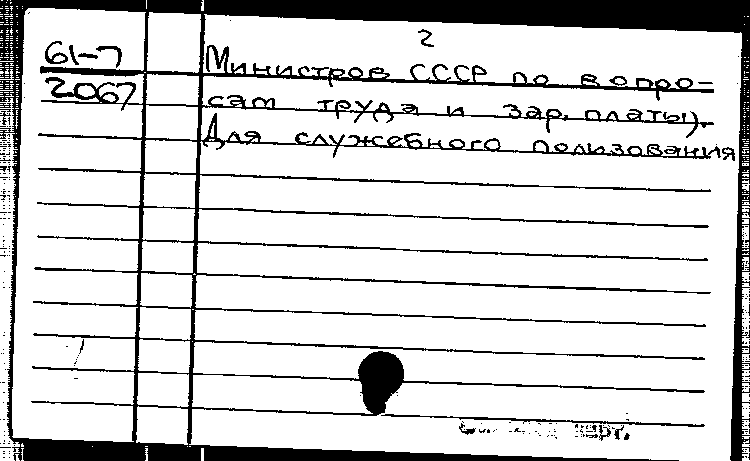 2
61-7 Министров СССР по вопро-
2067 сам труда и зар. платы).
Для служебного пользования